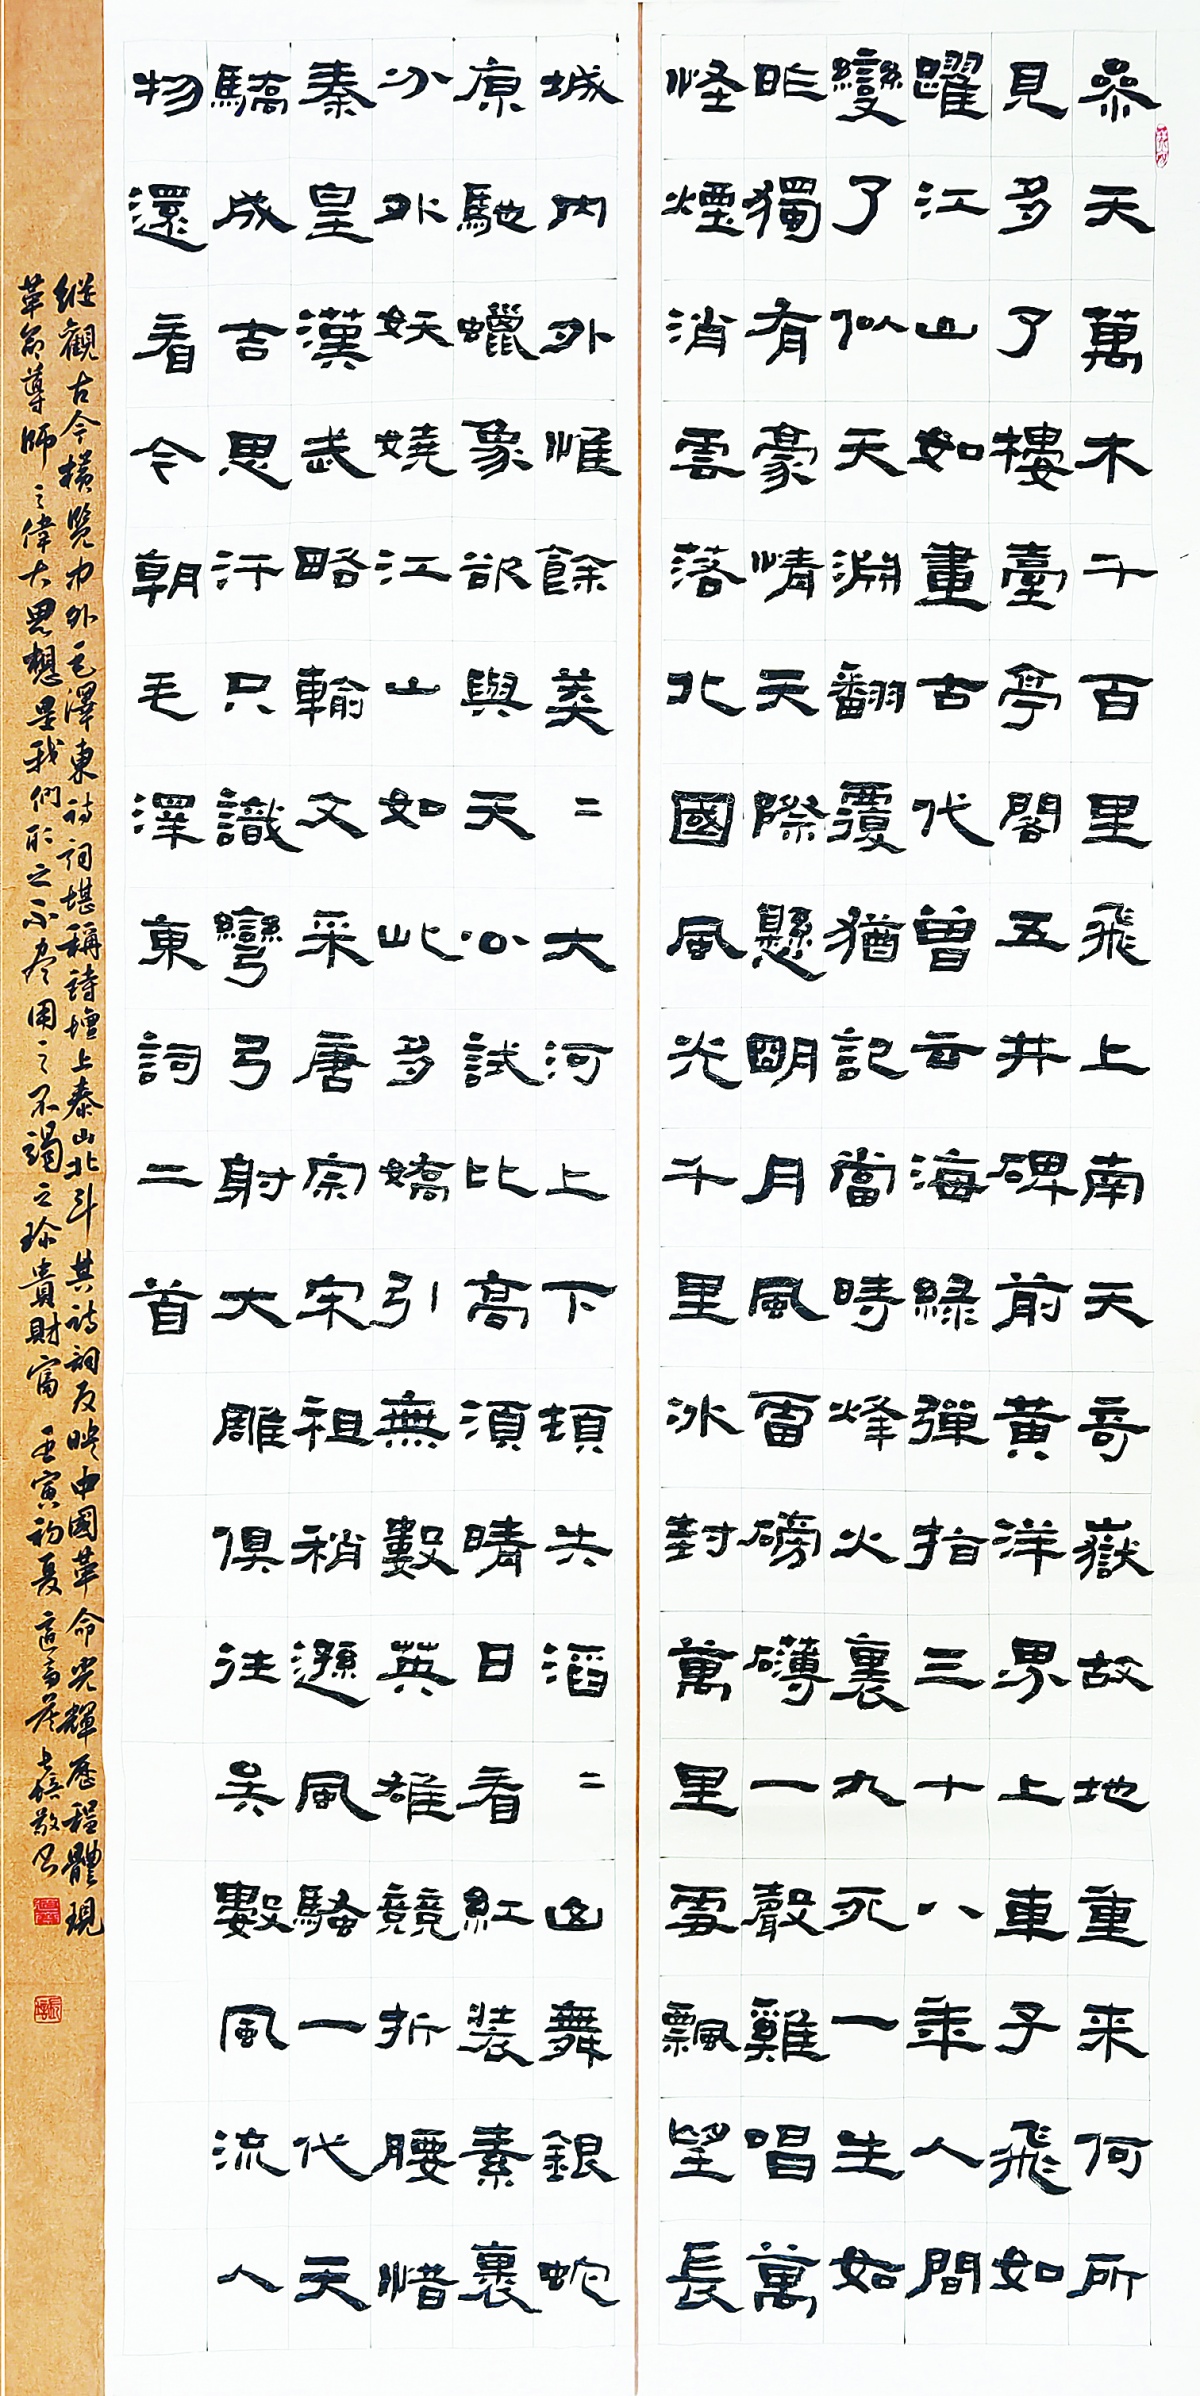 參天萬木千百里飛上南天奇嶽故地重来何所
見多了樓臺亭閣五井碑前黃洋界上車子飛如
躍江山如畫古代曾云海綠彈指三十八年人間
變了似天淵翻覆猶記當時烽火裏九死一生如
昨獨有豪情天際懸明月風雷磅礴一聲雞唱萬
怪煙消雲落北國風光千里冰封萬里雪飄望長
城內外惟餘莽〻大河上下頓失滔〻山舞銀蛇
原馳蠟象欲與天公試比高須晴日看紅裝素裹
分外妖嬈江山如此多嬌引無數英雄競折腰惜
秦皇漢武略輸文采唐宗宋祖稍遜風騷一代天
驕成吉思汗只識彎弓射大雕俱往矣數風流人
物還看今朝毛澤東詞二首
縱觀古今橫覽中外毛澤東詩詞堪稱詩壇上泰山北斗其詩詞反映中國革命光輝歷程體現
革命導師之偉大思想是我們取之不盡用之不竭之珍貴財富壬寅初夏敬書